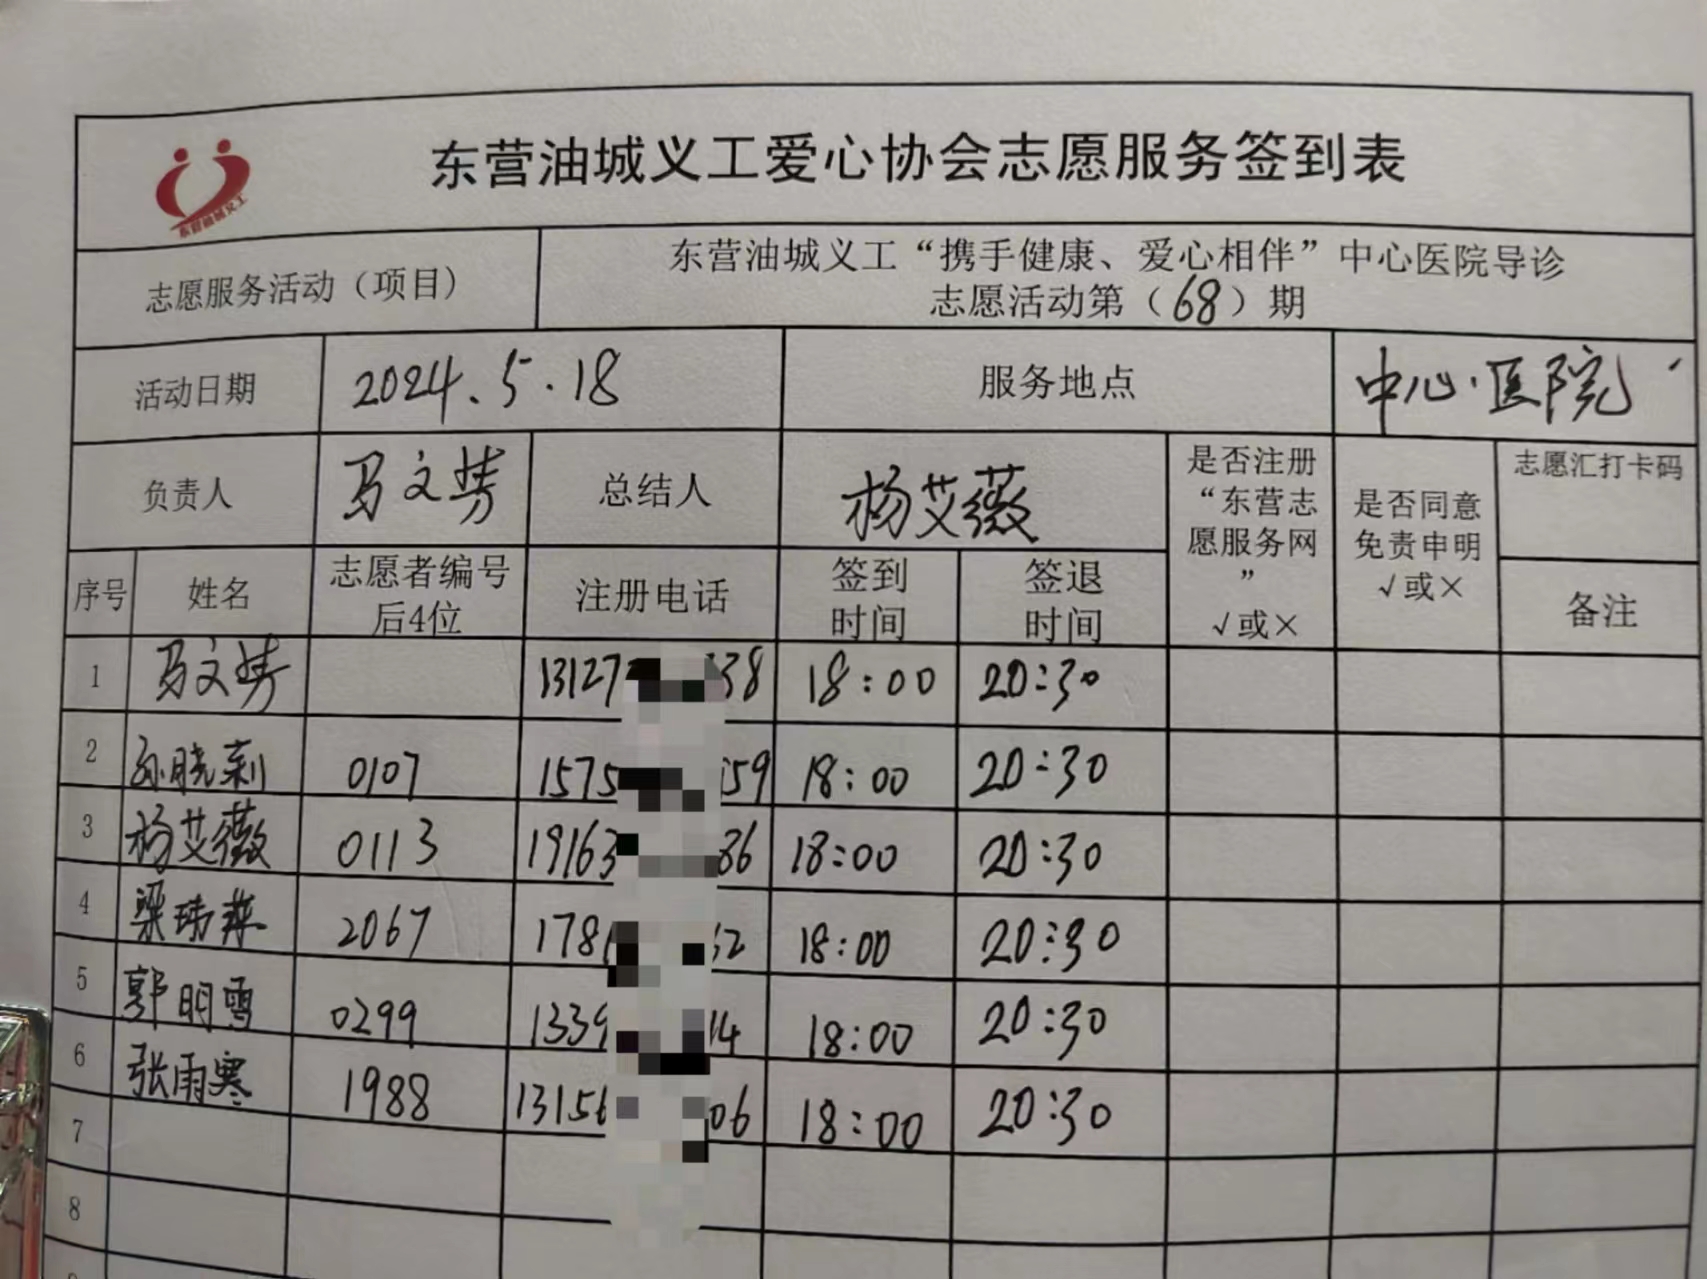 东营油城义工爱心协会志愿服务签到表
东营油城义工
志愿服务活动（项目）
东营油城义工“携手健康、爱心相伴”中心医院导诊
志愿活动第（68）期
活动日期 2024.5.18 服务地点 中心医院
负责人 马文芳 总结人 杨艾薇
是否注册
“东营志
愿服务网
”
√或×
是否同意
免责申明
√或×
志愿汇打卡码
序号 姓名
志愿者编号
后4位
注册电话
签到
时间
签退
时间
备注
1 马文芳 13127 38 18:00 20:30
2 孙晓莉 0107 1575 59 18:00 20:30
3 杨艾薇 0113 19163 86 18:00 20:30
4 梁玮燕 2067 178 32 18:00 20:30
5 郭明雪 0299 1339 14 18:00 20:30
6 张雨寒 1988 13156 06 18:00 20:30
7
8